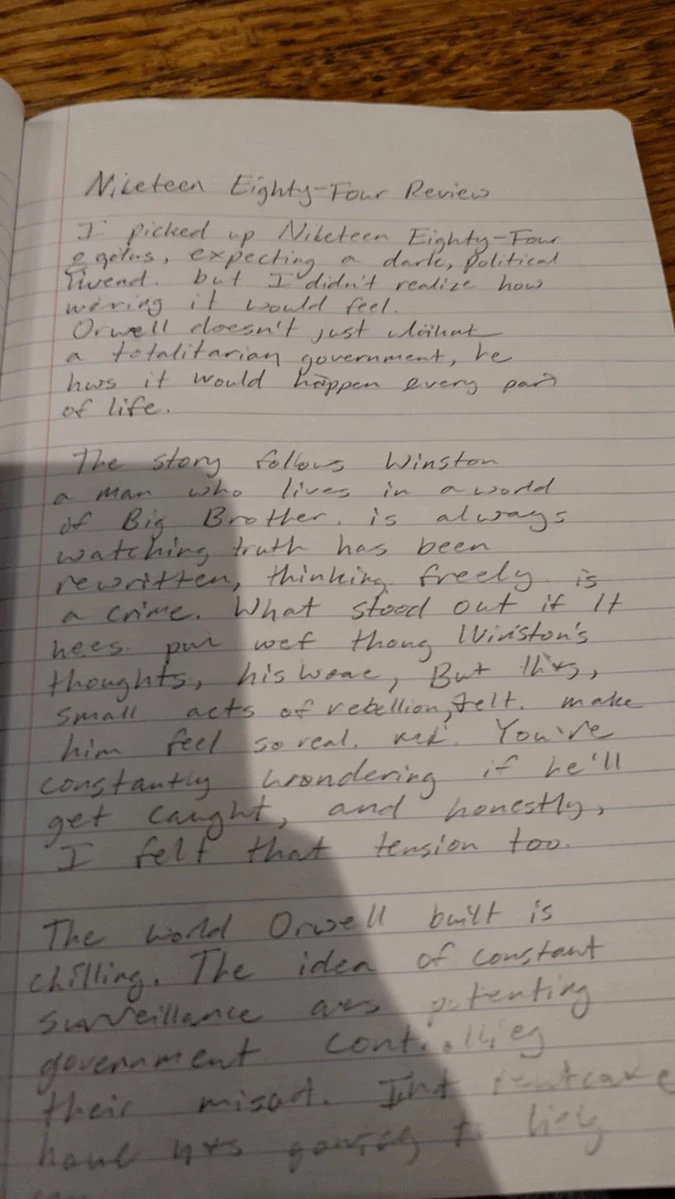 Niketeen Eighty-Four Review
I picked up Niketeen Eighty-Four
expecting a dark, political
but I didn't realize how
it would feel.
Orwell doesn't just
a totalitarian government, he
it would happen every part
of life.
The story follows Winston
a man who lives in a world
of Big Brother. is always
watching truth has been
rewritten, thinking freely is
a crime. What stood out if It
Winston's
thoughts, his But
small acts of rebellion, felt. make
him feel so real. You're
constantly wrondering if he'll
get caught, and honestly,
I felt that tension too.
The world Orwell built is
chilling. The idea of constant
surveillance
government
their
to